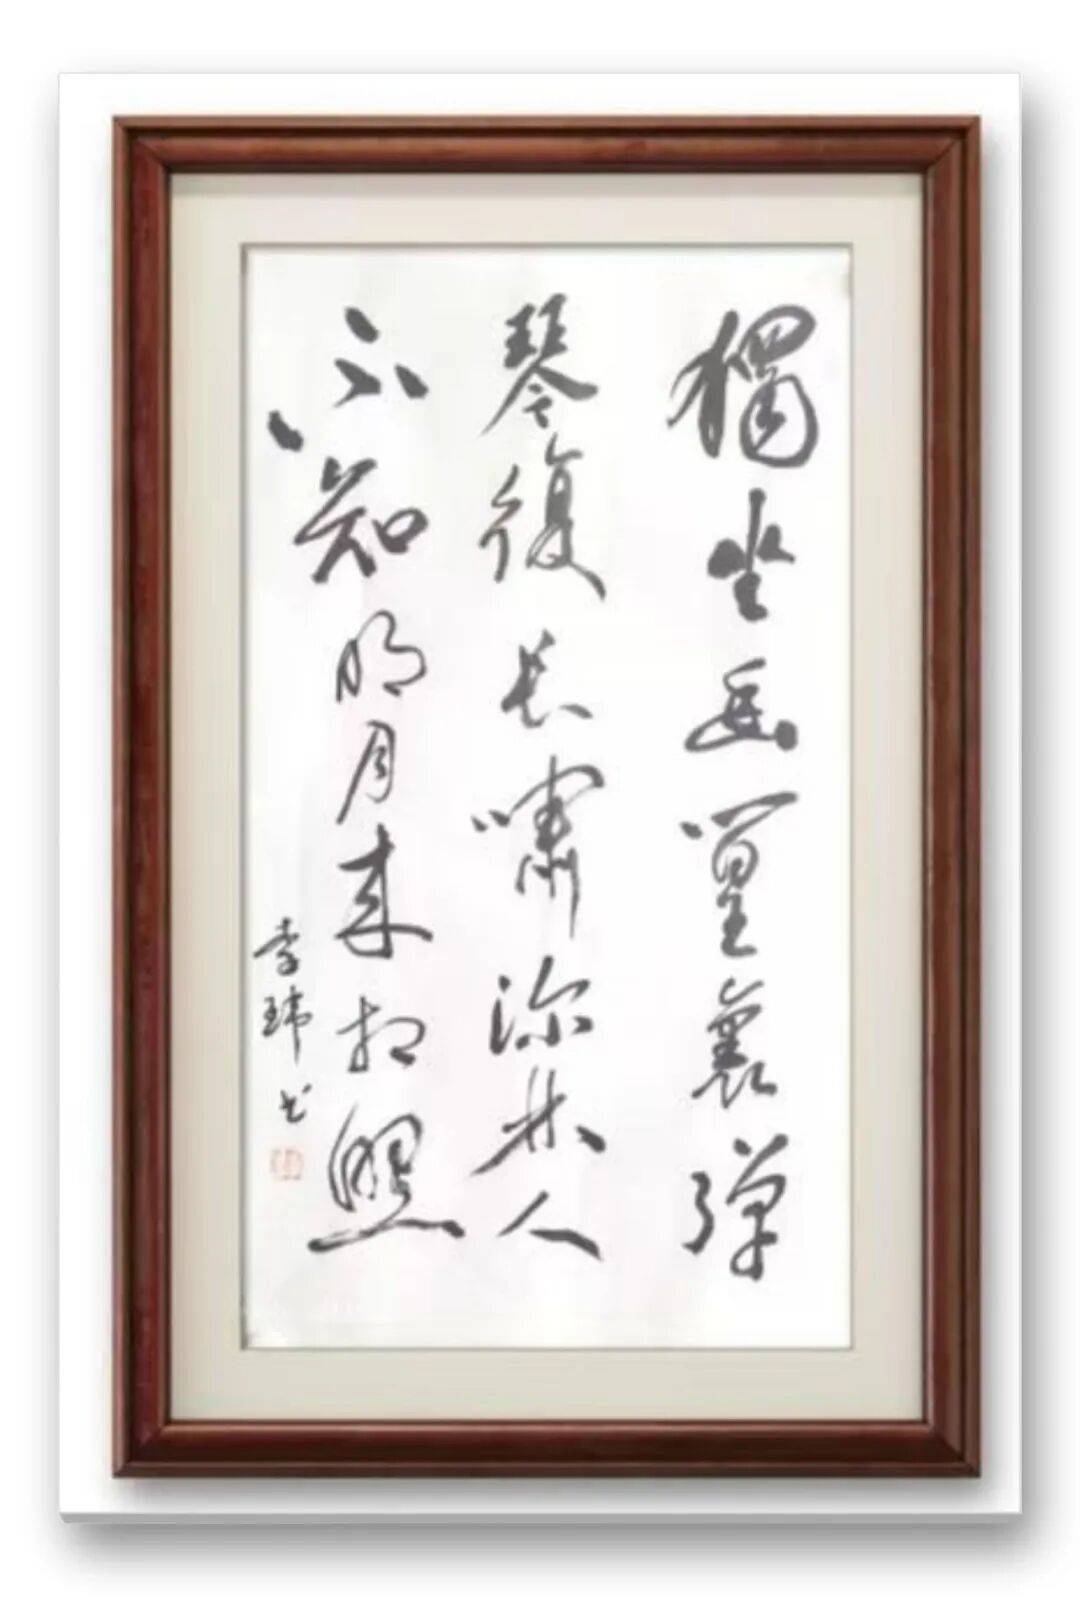 獨坐幽篁裏彈
琴復長嘯深林人
不知明月来相照
李玮书